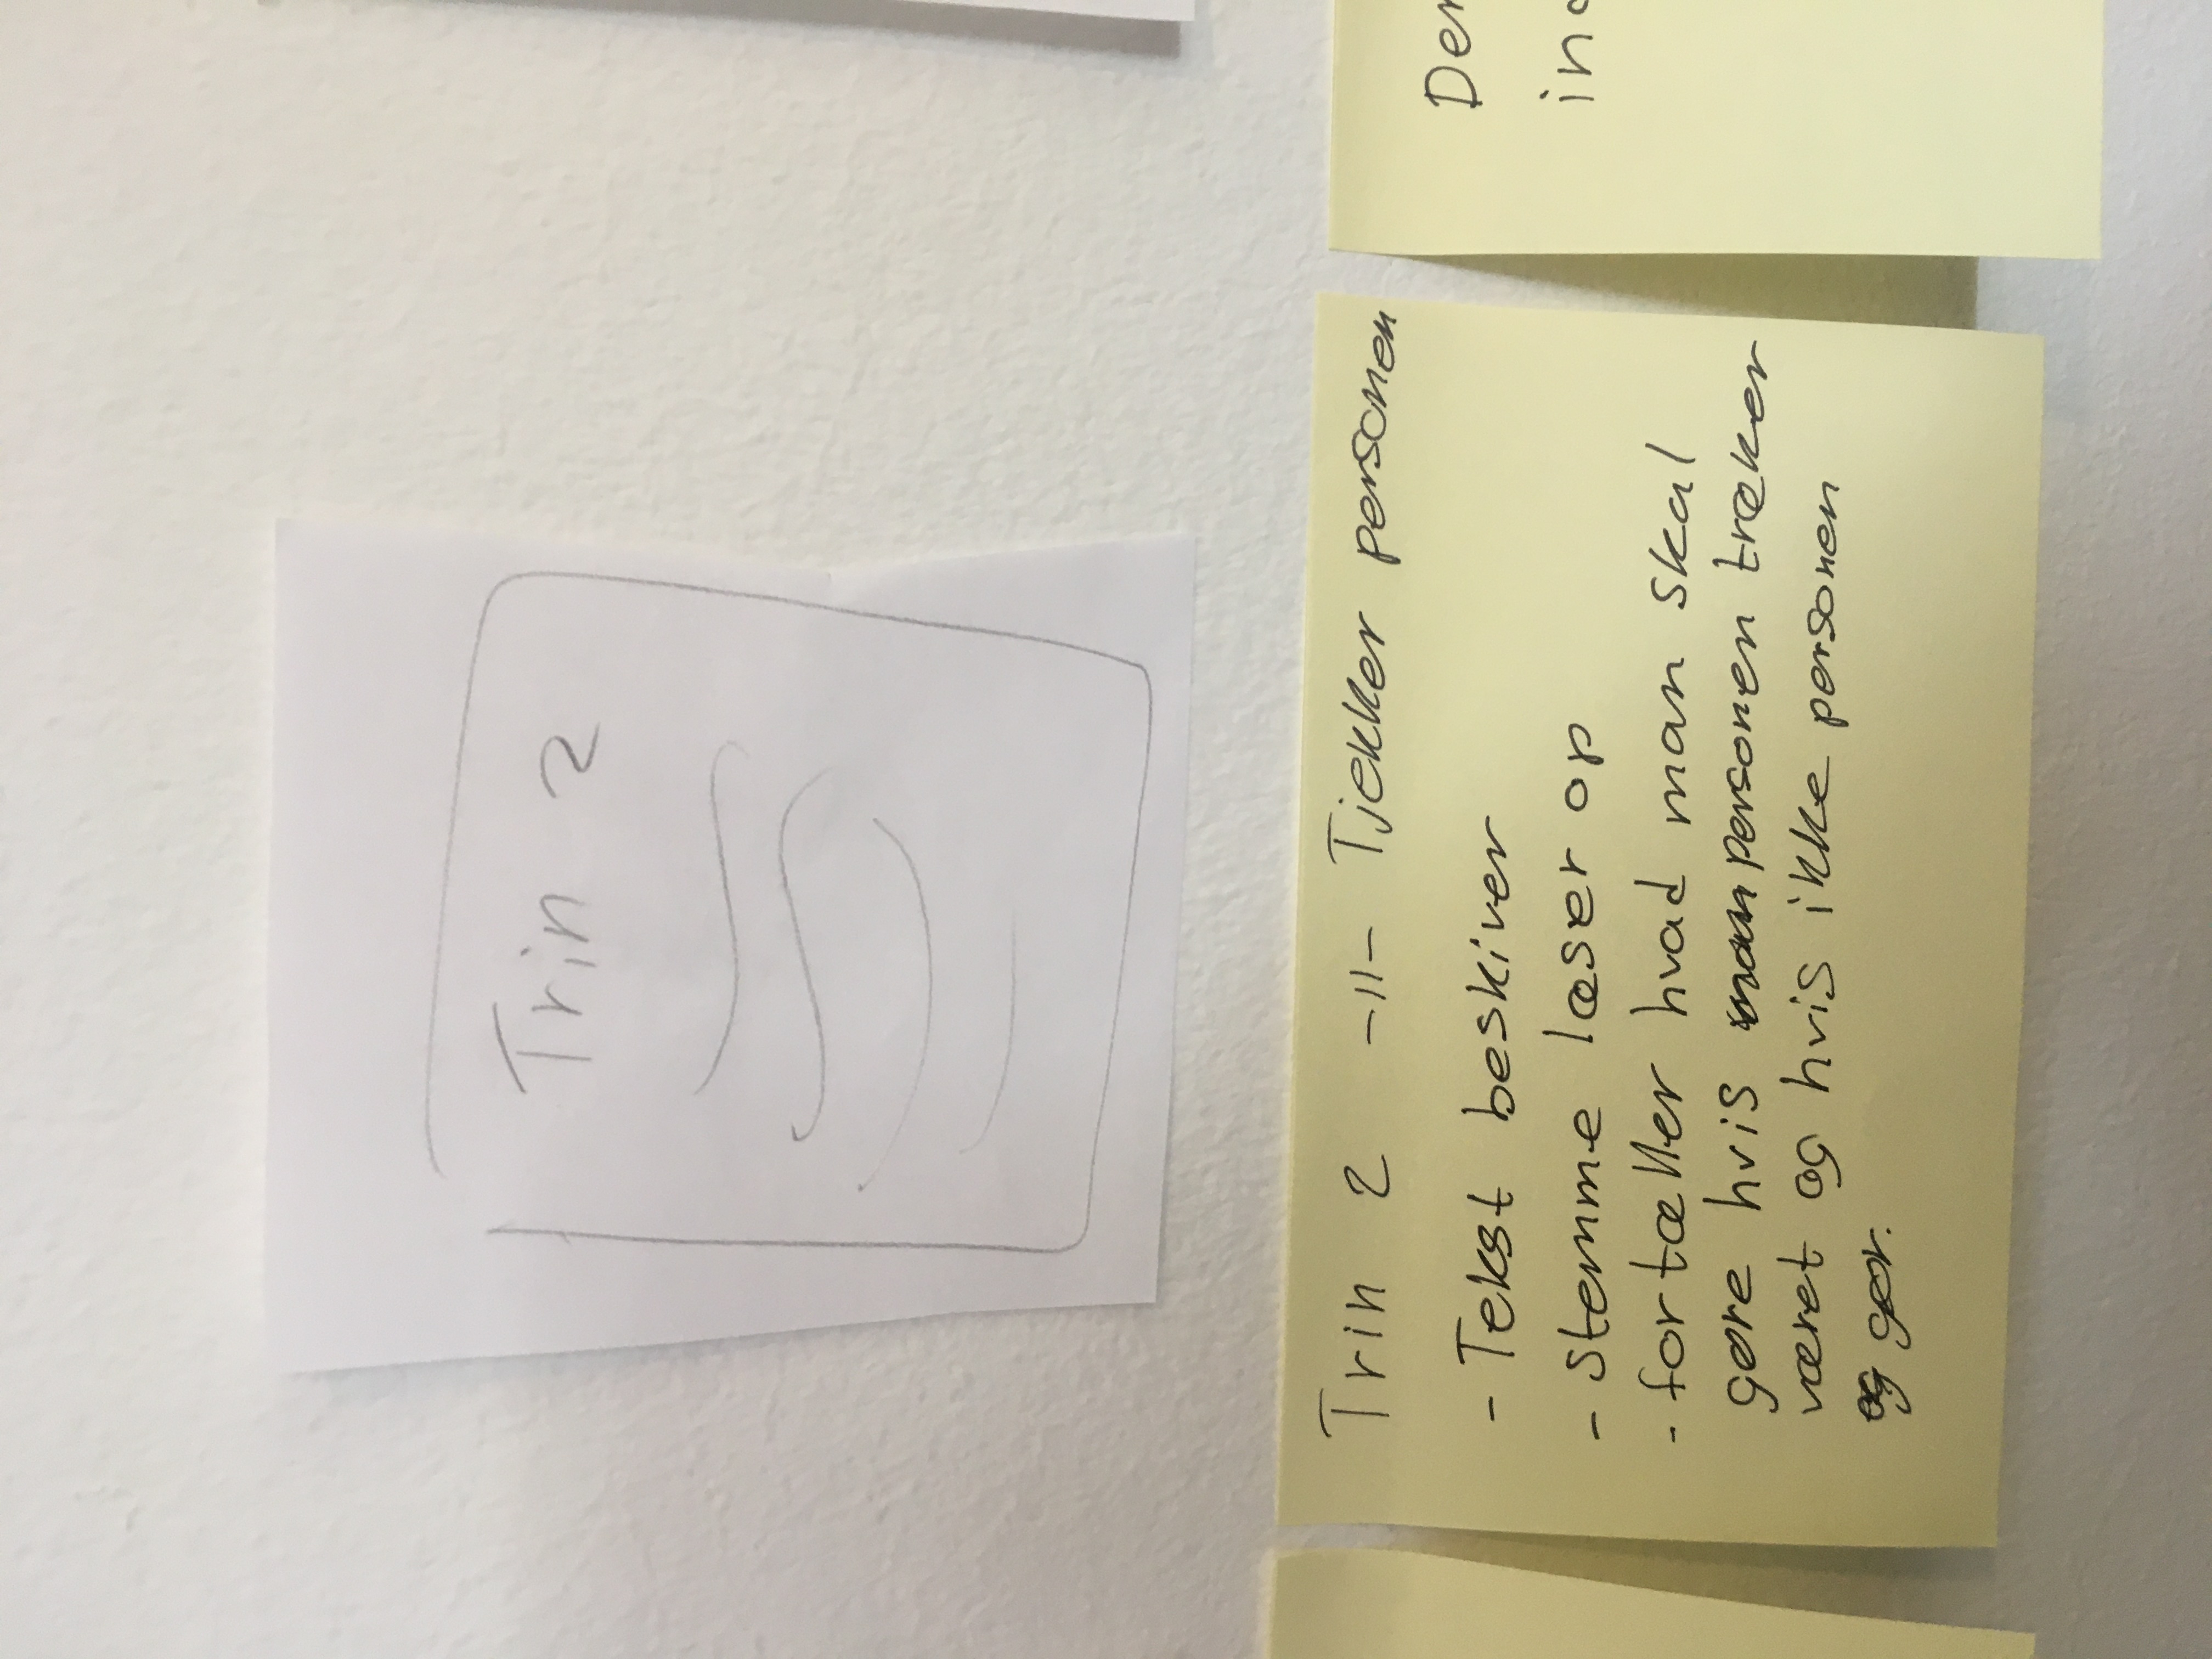 Trin 2
Trin 2 -11- Tjekker personen
- Tekst beskiver
- stemme læser op
- fortæller hvad man skal
gøre hvis man personen træker
været og hvis ikke personen
og gør.
Der
ind